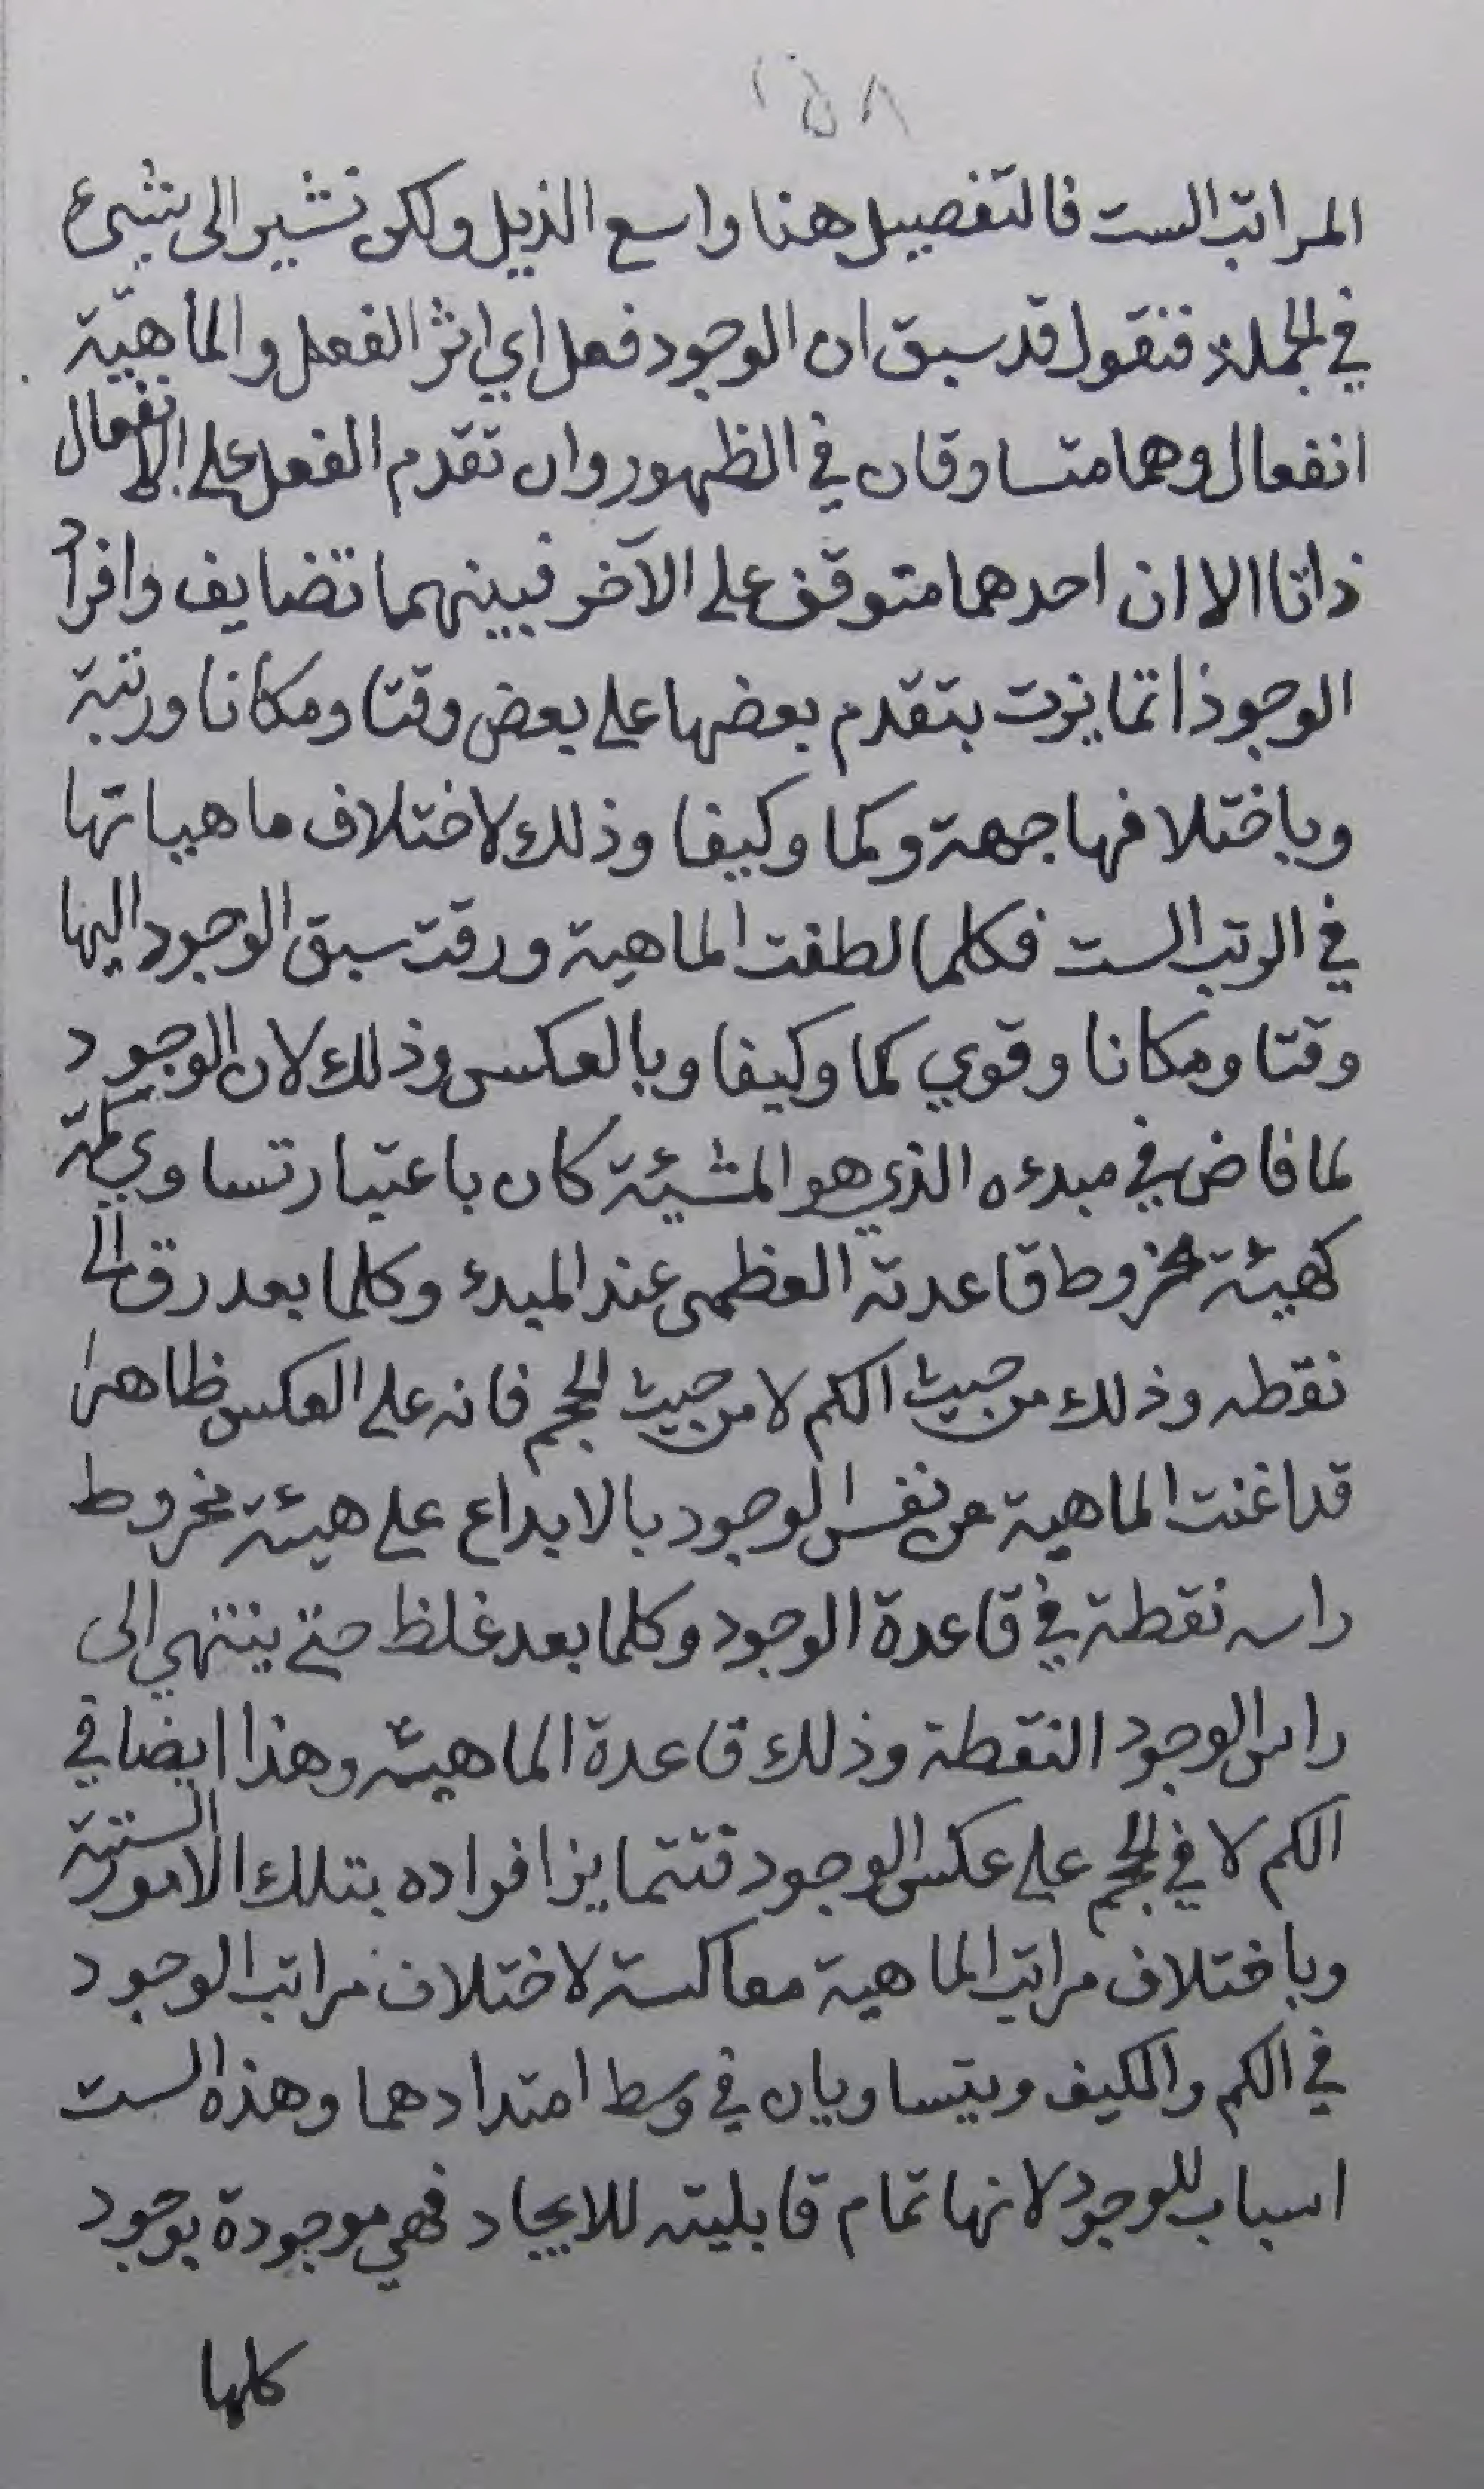 المراتب الست فالتفصيل هنا واسع الذيل ولكن نشير الى شيء
في الجملة فنقول قد سبق ان الوجود فعل اي اثر الفعل والماهيّة
انفعال وهما متساوقان في الظهور وان تقدم الفعل على الانفعال
ذاتا الا ان احدهما متوقف على الآخر فبينهما تضايف وافراد
الوجود اتمايزت بتقدم بعضها على بعض وقتا ومكانا ورتبة
وباختلافها جهة وكما وكيفا وذلك لاختلاف ماهياتها
في الرتب الست فكلما لطفت الماهية ورقت سبق الوجود اليها
وقتا ومكانا وقوي كما وكيفا وبالعكس وذلك لان الوجود
لما فاض في مبدءه الذي هو المشيئة كان باعتبار تساوي
كهيئة مخروط قاعدته العظمى عند المبدء وكلما بعد رق الى
نقطه وذلك من حيث الكم لا من حيث الحجم فانه على العكس ظاهرا
من نفس الوجود بالابداع على هيئة مخروط
راسه نقطة في قاعدة الوجود وكلما بعد غلظ حتى ينتهي الى
راس الوجود النقطة وذلك قاعدة الماهية وهذا ايضا في
الكم لا في الحجم على عكس الوجود فتتمايز افراده بتلك الامور الستة
وباختلاف مراتب الماهية معاكسة لاختلاف مراتب الوجود
في الكم والكيف ويتساويان في وسط امتدادهما وهذه الست
اسباب للوجود لانها تمام قابليته للايجاد فهي موجودة بوجود
كلها